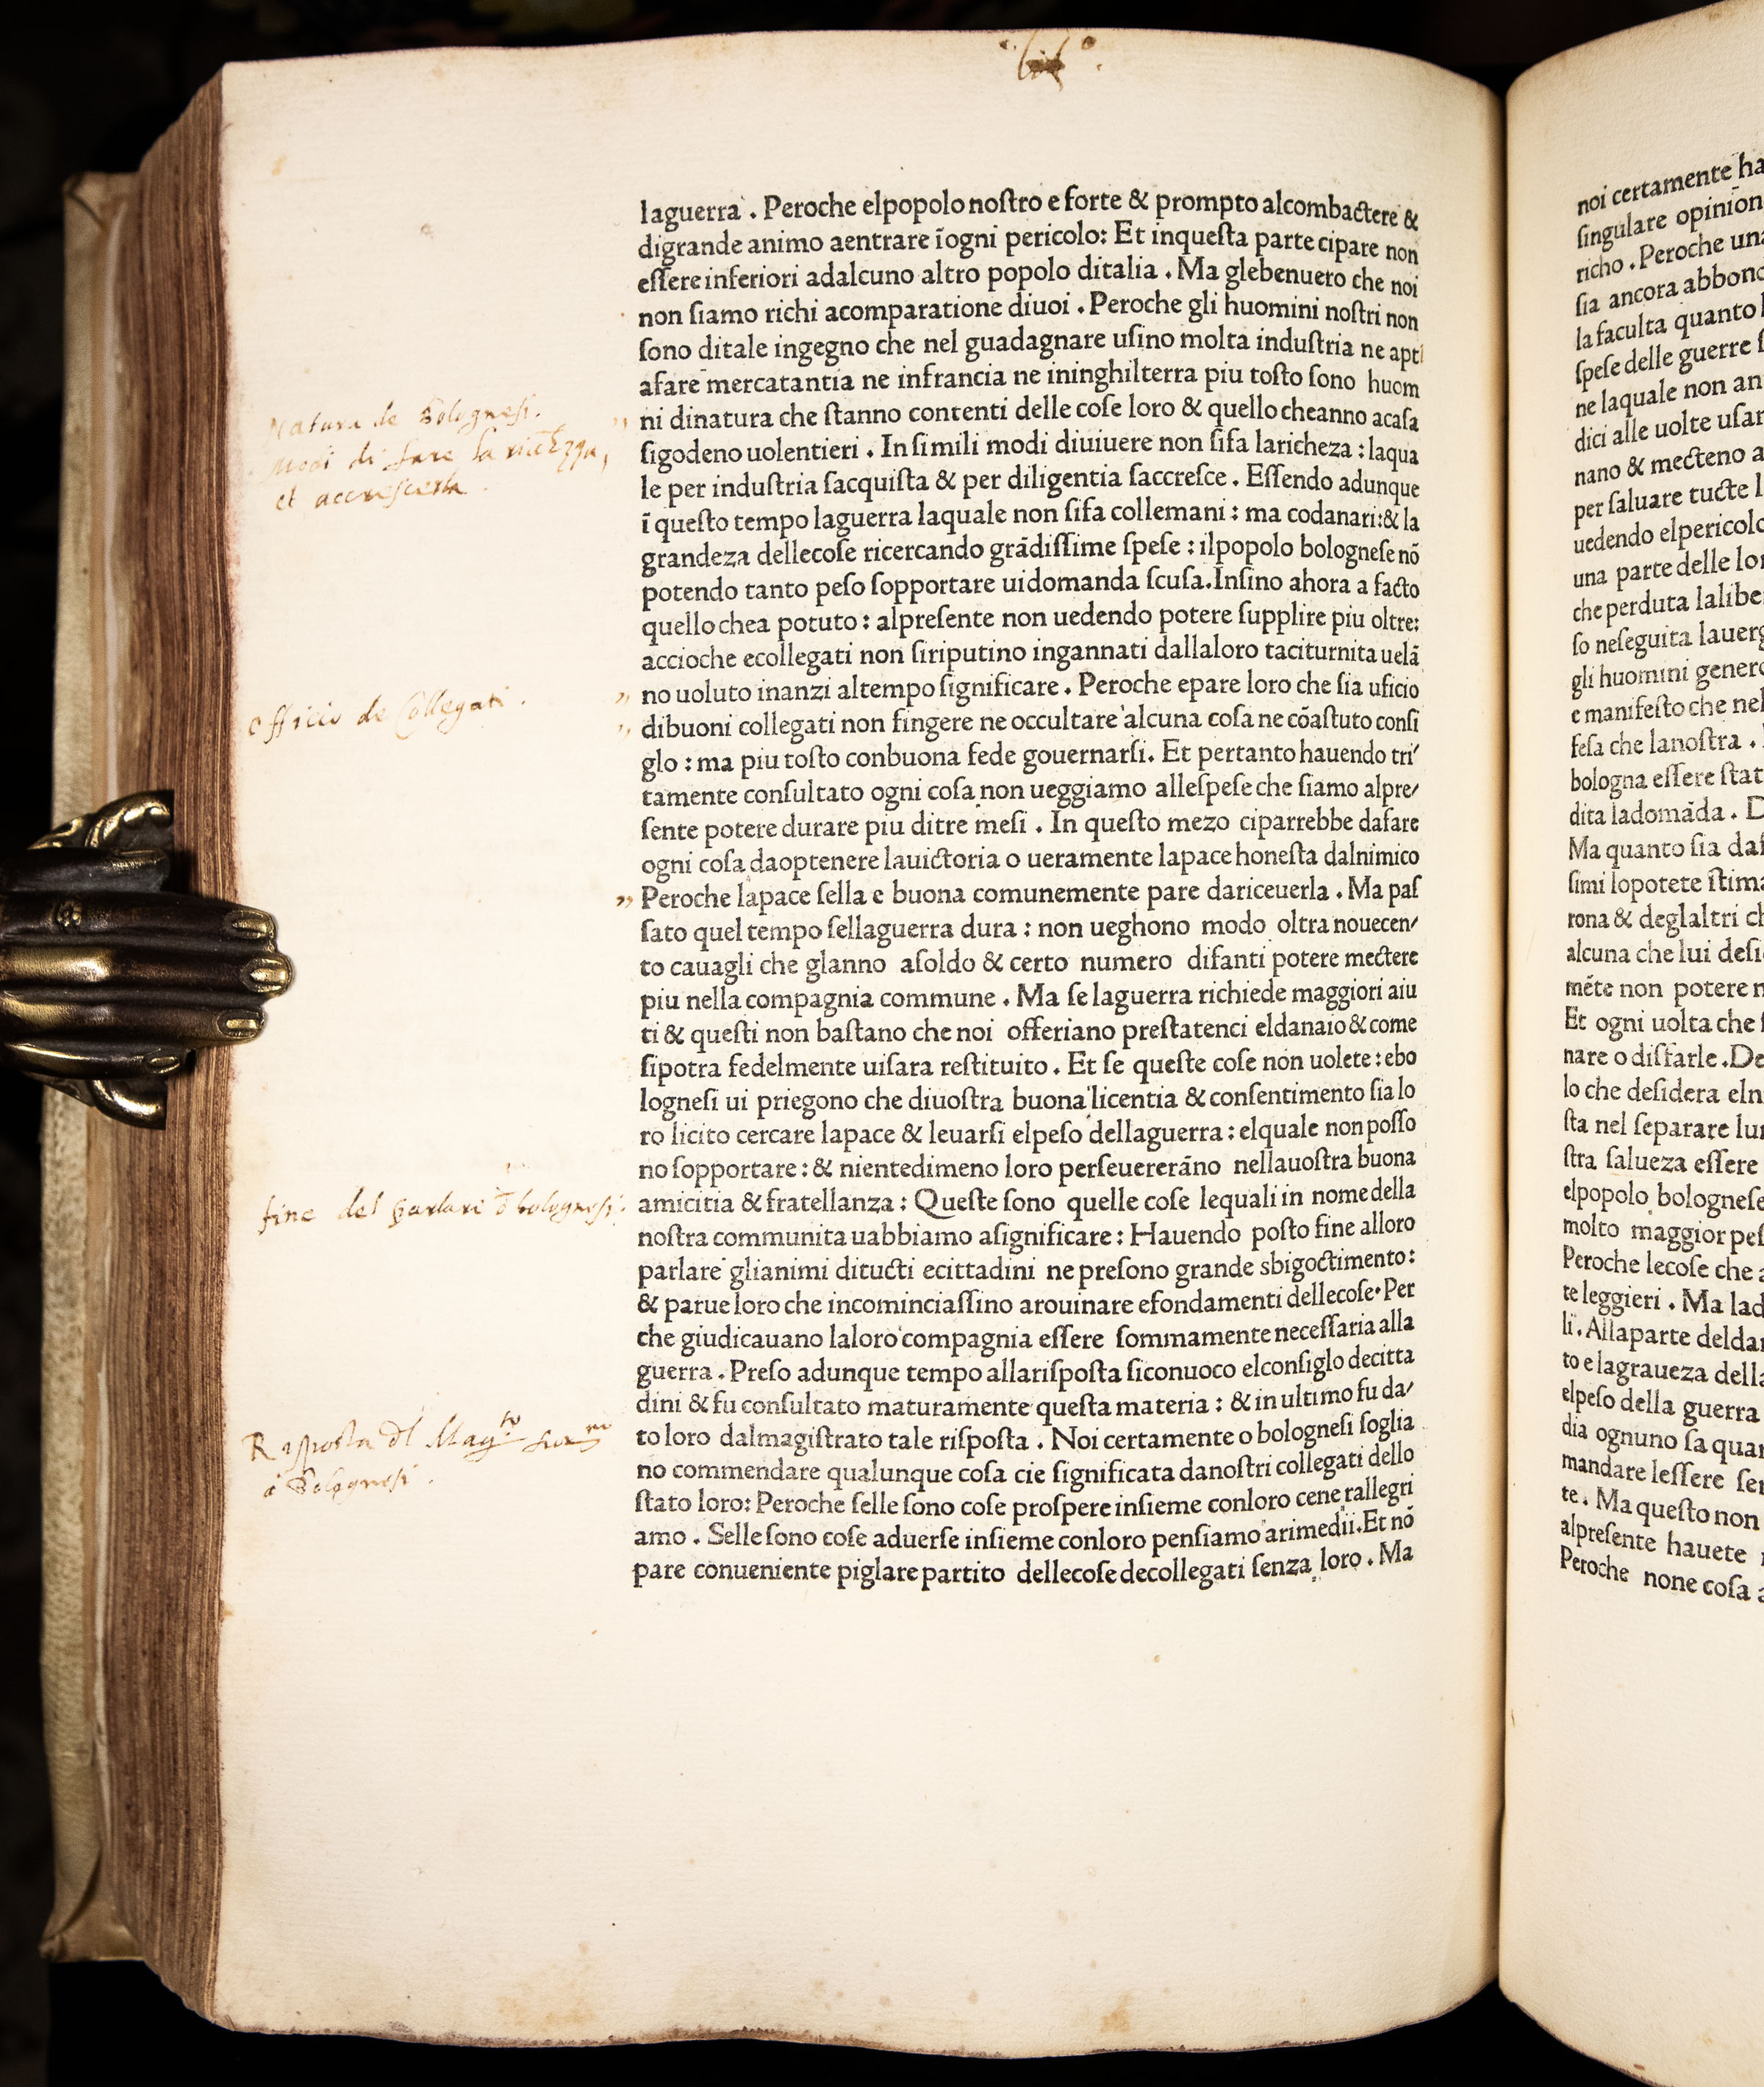 lib°.
laguerra . Peroche elpopolo noſtro e forte & prompto alcombactere &
digrande animo aentrare ĩogni pericolo: Et inqueſta parte cipare non
eſſere inferiori adalcuno altro popolo ditalia . Ma glebenuero che noi
non ſiamo richi acomparatione diuoi . Peroche gli huomini noſtri non
ſono ditale ingegno che nel guadagnare uſino molta induſtria ne apti
afare mercatantia ne infrancia ne ininghilterra piu toſto ſono huom
Natura de Bolognesi.
ni dinatura che ſtanno contenti delle coſe loro & quello cheanno acaſa
Modi di fare la
ſigodeno uolentieri . In ſimili modi diuiuere non ſifa laricheza : laqua
et accrescerla.
le per induſtria ſacquiſta & per diligentia ſaccreſce . Eſſendo adunque
ĩ queſto tempo laguerra laquale non ſifa collemani : ma codanari:& la
grandeza dellecoſe ricercando grãdiſſime ſpeſe : ilpopolo bologneſe nõ
potendo tanto peſo ſopportare uidomanda ſcuſa.Inſino ahora a facto
quello chea potuto : alpreſente non uedendo potere ſupplire piu oltre:
accioche ecollegati non ſiriputino ingannati dallaloro taciturnita uelã
officio de Collegati.
,, no uoluto inanzi altempo ſignificare . Peroche epare loro che ſia uficio
,, dibuoni collegati non fingere ne occultare alcuna coſa ne cõaſtuto conſi
glo : ma piu toſto conbuona fede gouernarſi. Et pertanto hauendo tri/
tamente conſultato ogni coſa non ueggiamo alleſpeſe che ſiamo alpre/
ſente potere durare piu ditre meſi . In queſto mezo ciparrebbe dafare
ogni coſa daoptenere lauictoria o ueramente lapace honeſta dalnimico
,, Peroche lapace ſella e buona comunemente pare dariceuerla . Ma paſ
ſato quel tempo ſellaguerra dura : non ueghono modo oltra nouecen/
to cauagli che glanno aſoldo & certo numero difanti potere mectere
piu nella compagnia commune . Ma ſe laguerra richiede maggiori aiu
ti & queſti non baſtano che noi offeriano preſtatenci eldanaio & come
ſipotra fedelmente uiſara reſtituito . Et ſe queſte coſe non uolete : ebo
logneſi ui priegono che diuoſtra buona licentia & conſentimento ſia lo
ro licito cercare lapace & leuarſi elpeſo dellaguerra : elquale non poſſo
no ſopportare : & nientedimeno loro perſeuererãno nellauoſtra buona
fine del parlare bolognesi.
amicitia & fratellanza : Queſte ſono quelle coſe lequali in nome della
noſtra communita uabbiamo aſignificare : Hauendo poſto fine alloro
parlare glianimi ditucti ecittadini ne preſono grande sbigoctimento :
& parue loro che incominciaſſino arouinare efondamenti dellecoſe. Per
che giudicauano laloro compagnia eſſere ſommamente neceſſaria alla
guerra . Preſo adunque tempo allariſpoſta ſiconuoco elconſiglo decitta
dini & fu conſultato maturamente queſta materia : & in ultimo fu da/
Risposta dl Mag.to
to loro dalmagiſtrato tale riſpoſta . Noi certamente o bologneſi ſoglia
à Bolognesi.
no commendare qualunque coſa cie ſignificata danoſtri collegati dello
ſtato loro: Peroche ſelle ſono coſe proſpere inſieme conloro cene rallegri
amo . Selle ſono coſe aduerſe inſieme conloro penſiamo arimedii.Et nõ
pare conueniente piglare partito dellecoſe decollegati ſenza loro . Ma
noi certamente ha
ſingulare opinion
richo . Peroche una
ſia ancora abbond
la faculta quanto
ſpeſe delle guerre
ne laquale non an
dici alle uolte uſar
nano & mecteno a
per ſaluare tucte l
uedendo elpericolo
una parte delle lor
che perduta lalibe
ſo neſeguita lauerg
gli huomini genero
e manifeſto che nel
feſa che lanoſtra .
bologna eſſere ſtat
dita ladomãda . D
Ma quanto ſia daſ
ſimi lopotete ſtima
rona & deglaltri ch
alcuna che lui deſi
mẽte non potere
Et ogni uolta che
nare o disfarle .De
lo che deſidera eln
ſta nel ſeparare
ſtra ſalueza eſſere
elpopolo bologneſe
molto maggior peſ
Peroche lecoſe che
te leggieri . Ma lad
li . Allaparte deldan
to e lagraueza della
elpeſo della guerra
dia ognuno ſa quan
mandare leſſere
te . Ma queſto non
alpreſente hauete
Peroche none coſa a